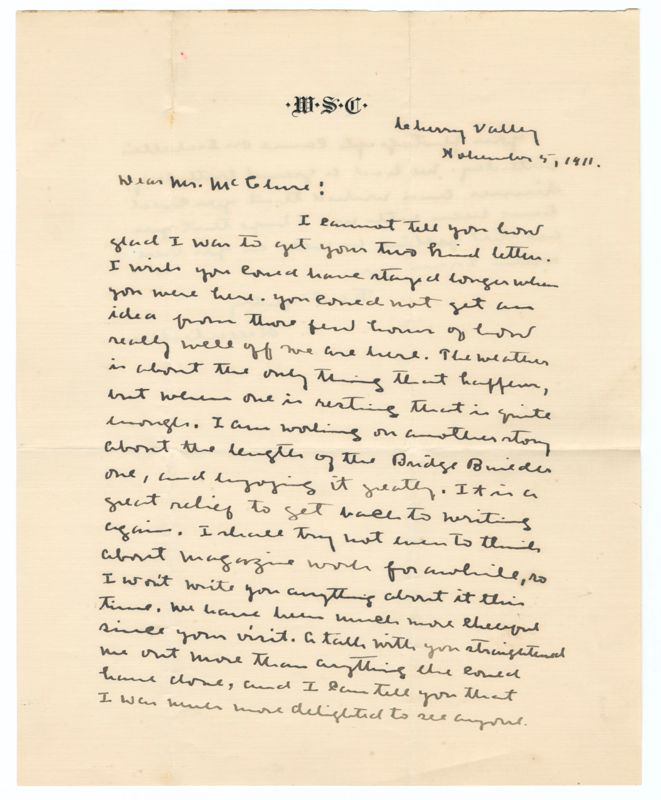 ·W·S·C·
Cherry Valley
November 5, 1911.
Dear Mr. McClure:
I cannot tell you how
glad I was to get your two kind letters.
I wish you could have stayed longer when
you were here. You could not get an
idea from those few hours of how
really well off we are here. The weather
is about the only thing that happens,
but when one is resting that is quite
enough. I am working on another story
about the length of the Bridge Builder
one, and enjoying it greatly. It is a
great relief to get back to writing
again. I shall try not even to think
about magazine work for awhile, so
I won't write you anything about it this
time. We have been much more cheerful
since your visit. A talk with you straightened
me out more than anything else could
have done, and I can tell you that
I was never more delighted to see anyone.